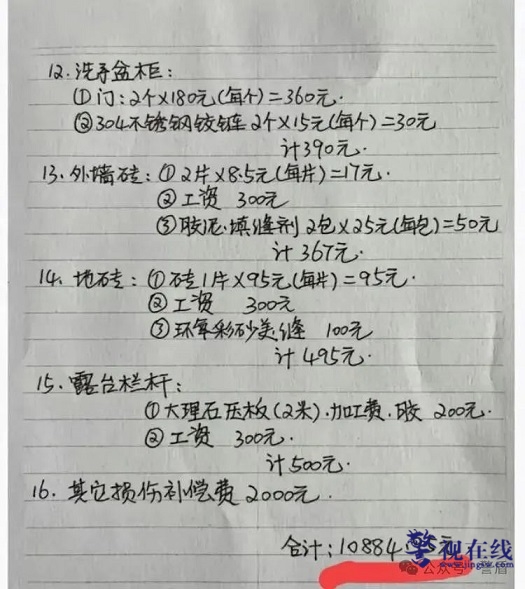 12.洗手盆柜:
①门:2个×180元(每个)=360元.
②304不锈钢铰链 2个×15元(每个)=30元
计390元.
13.外墙砖:①2片×8.5元(每片)=17元.
②工资 300元
③胶泥.填缝剂 2包×25元(每包)=50元
计367元.
14.地砖:①砖1片×95元(每片)=95元.
②工资 300元
③环氧彩砂美缝 100元
计495元.
15.露台栏杆:
①大理石压板(2米).加工费.胶 200元.
②工资 300元.
计500元.
16.其它损伤补偿费2000元.
合计:10884
元
警视在线
www.jingsw.com
公众号